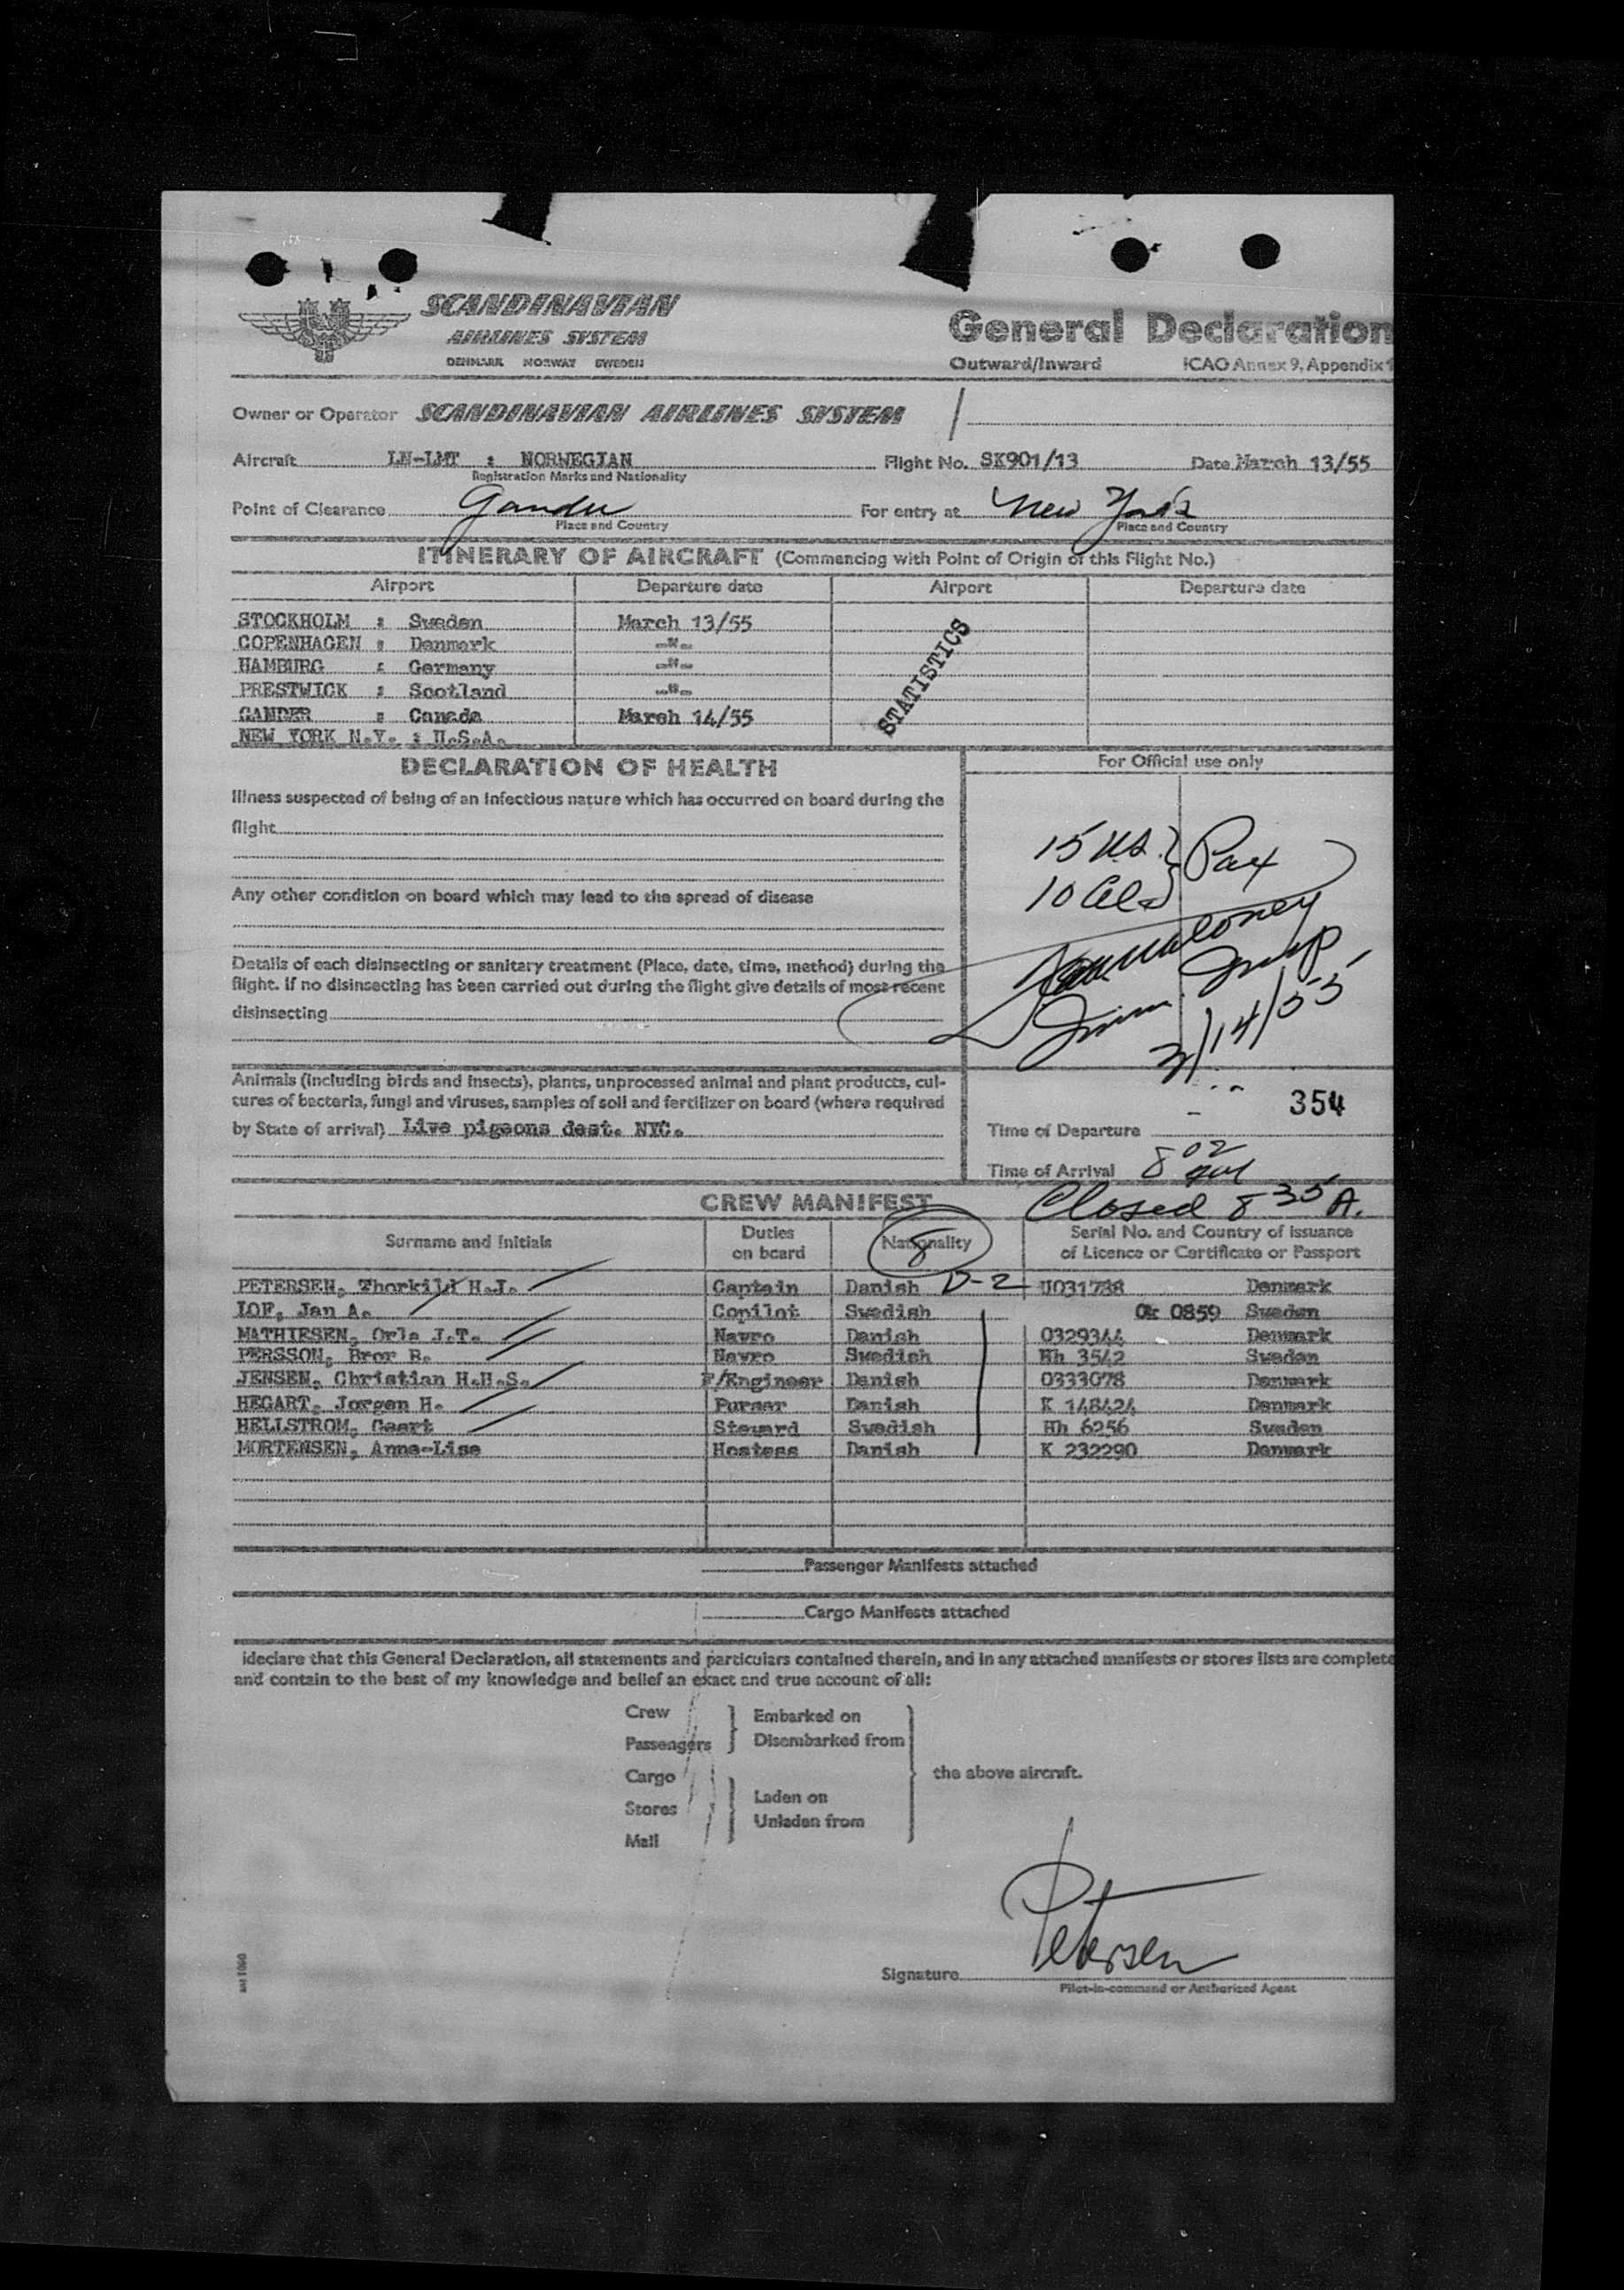 SCANDINAVIAN
AIRLINES SYSTEM
DENMARK NORWAY SWEDEN
General Declaration
Outward/Inward ICAO Annex 9, Appendix 1
Owner or Operator SCANDINAVIAN AIRLINES SYSTEM
Aircraft LN-LMT : NORWEGIAN Flight No. SK901/13 Date March 13/55
Registration Marks and Nationality
Point of Clearance Gander For entry at New York
Place and Country Place and Country
ITINERARY OF AIRCRAFT (Commencing with Point of Origin of this Flight No.)
Airport Departure date Airport Departure date
STOCKHOLM : Sweden March 13/55
COPENHAGEN : Denmark -"-
HAMBURG : Germany -"-
PRESTWICK : Scotland -"-
GANDER : Canada March 14/55
NEW YORK N.Y. : U.S.A.
STATISTICS
DECLARATION OF HEALTH
Illness suspected of being of an infectious nature which has occurred on board during the
flight
Any other condition on board which may lead to the spread of disease
Details of each disinsecting or sanitary treatment (Place, date, time, method) during the
flight. If no disinsecting has been carried out during the flight give details of most recent
disinsecting
Animals (including birds and insects), plants, unprocessed animal and plant products, cul-
tures of bacteria, fungi and viruses, samples of soil and fertilizer on board (where required
by State of arrival) Live pigeons dest. NYC.
For Official use only
15 US } Pax
10
Maloney
Imm. Insp
3/14/55
354
Time of Departure
Time of Arrival 8 02
Closed 8 35 A.
CREW MANIFEST
Surname and Initials Duties on board Nationality Serial No. and Country of issuance of Licence or Certificate or Passport
8
PETERSEN, Thorkild H.J. Captain Danish D-2 U031788 Denmark
LOF, Jan A. Copilot Swedish Ok 0859 Sweden
MATHIESEN, Orla J.T. Navro Danish 0329344 Denmark
PERSSON, Bror B. Navro Swedish Hh 3542 Sweden
JENSEN, Christian H.H.S. F/Engineer Danish 0333078 Denmark
HEGART, Jorgen H. Purser Danish K 148424 Denmark
HELLSTROM, Geert Steward Swedish Hh 6256 Sweden
MORTENSEN, Anne-Lise Hostess Danish K 232290 Denmark
Passenger Manifests attached
Cargo Manifests attached
I declare that this General Declaration, all statements and particulars contained therein, and in any attached manifests or stores lists are complete
and contain to the best of my knowledge and belief an exact and true account of all:
Crew
Passengers
Embarked on
Disembarked from
Cargo
Stores
Mail
Laden on
Unladen from
the above aircraft.
Signature Petersen
Pilot-in-command or Authorized Agent